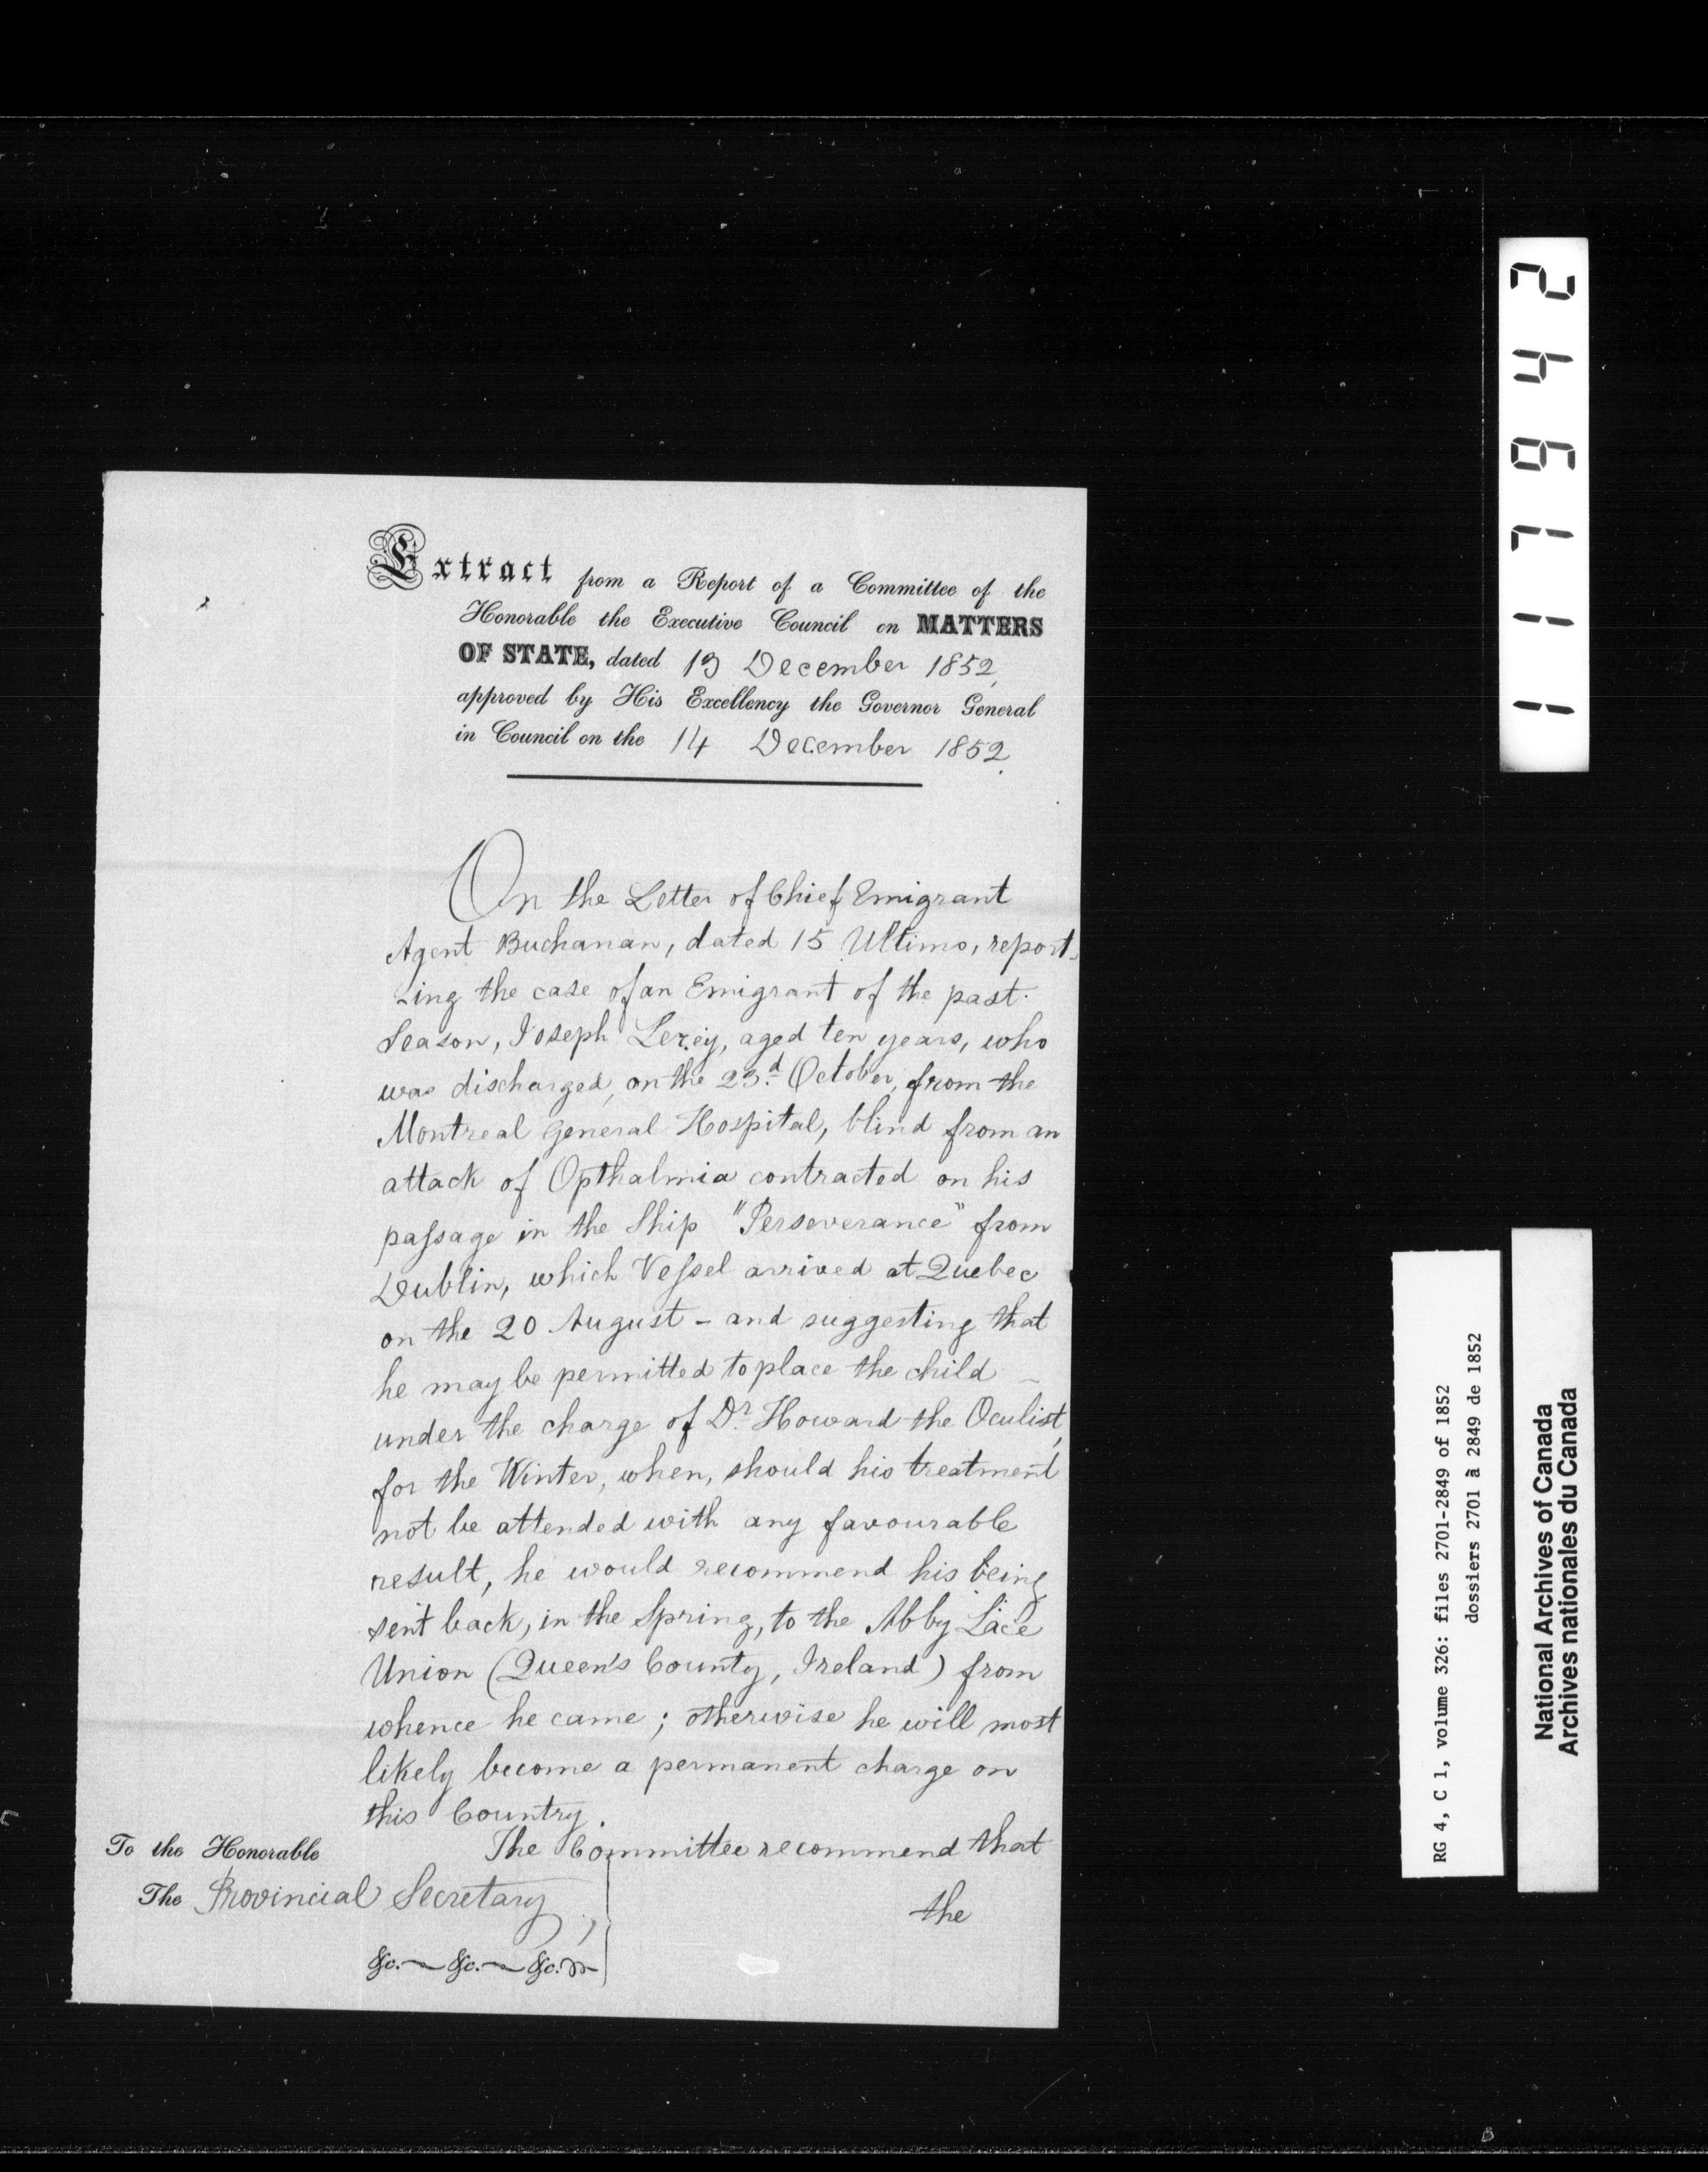 Extract from a Report of a Committee of the
Honorable the Executive Council on MATTERS
OF STATE, dated 13 December 1852,
approved by His Excellency the Governor General
in Council on the 14 December 1852.
On the Letter of Chief Emigrant
Agent Buchanan, dated 15 Ultimo, report-
-ing the case of an Emigrant of the past
Season, Joseph Lezey, aged ten years, who
was discharged, on the 23d October, from the
Montreal General Hospital, blind from an
attack of Opthalmia contracted on his
passage in the Ship "Perseverance" from
Dublin, which Vessel arrived at Quebec
on the 20 August - and suggesting that
he may be permitted to place the child
under the charge of Dr. Howard the Oculist,
for the Winter, when, should his treatment
not be attended with any favourable
result, he would recommend his being
sent back, in the Spring, to the Abby Lace
Union (Queen's County, Ireland) from
whence he came; otherwise he will most
likely become a permanent charge on
this Country.
The Committee recommend that
the
To the Honorable
The Provincial Secretary,
&c. &c. &c.
117942
RG 4, C 1, volume 326: files 2701-2849 of 1852
dossiers 2701 à 2849 de 1852
National Archives of Canada
Archives nationales du Canada